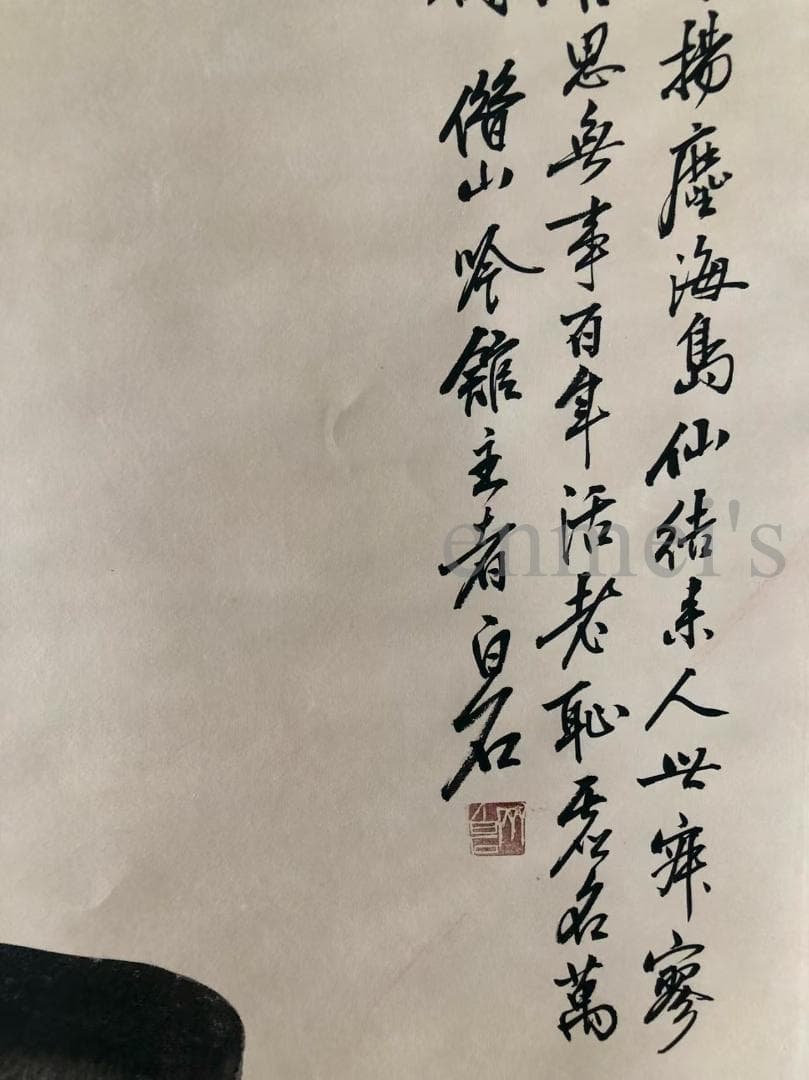 揚塵海島仙結來人世寂寥
思無事百年活老恥虛名萬
借山吟館主者白石
enmei's